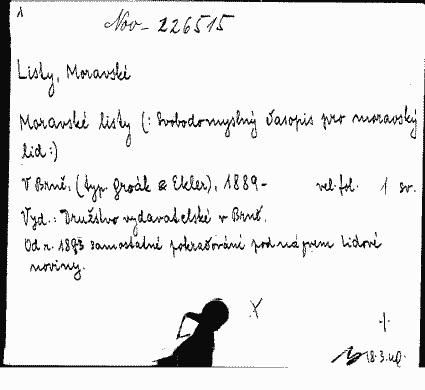 Nov- 226515
Listy, Moravské
Moravské listy (: Svobodomyslný časopis pro moravský
lid :)
V Brně, (typ. Groák & Ekler), 1889- vel. fol. 1 sv.
Vyd.: Družstvo vydavatelské v Brně.
Od r. 1893 samostatné pokračování pod názvem Lidové
noviny.
X